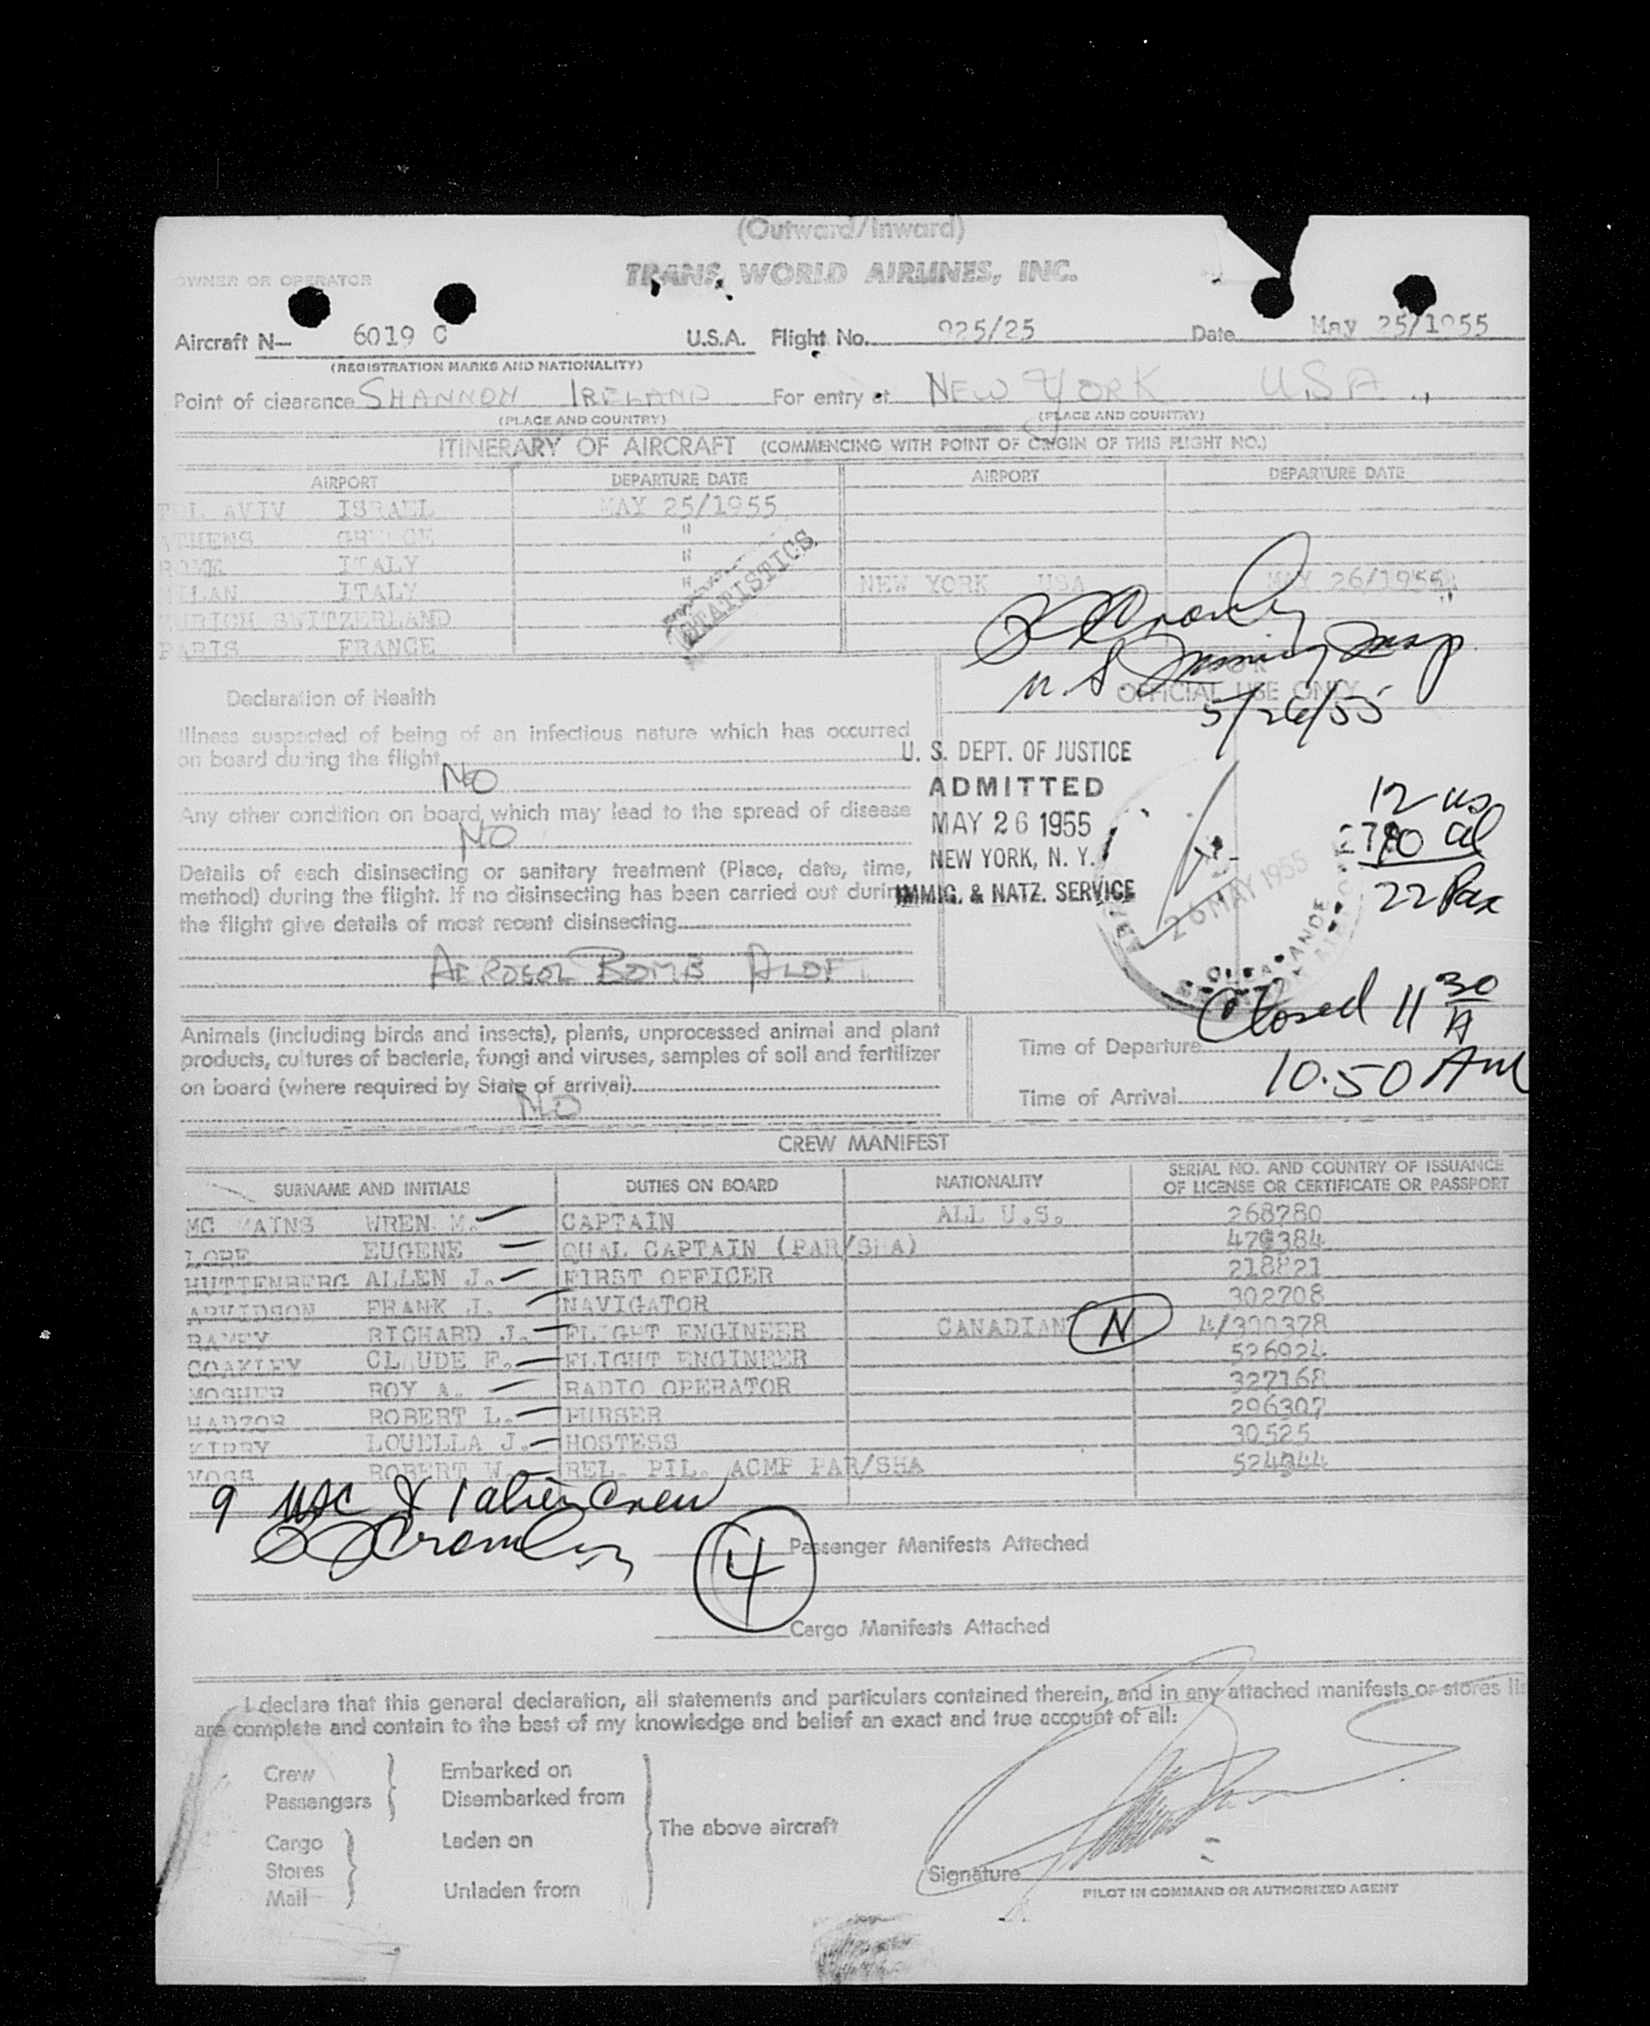 (Outward/Inward)
OWNER OR OPERATOR TRANS WORLD AIRLINES, INC.
Aircraft N- 6019 C U.S.A. Flight No. 925/25 Date May 25/1955
(REGISTRATION MARKS AND NATIONALITY)
Point of clearance SHANNON IRELAND For entry at NEW YORK USA
(PLACE AND COUNTRY) (PLACE AND COUNTRY)
ITINERARY OF AIRCRAFT (COMMENCING WITH POINT OF ORIGIN OF THIS FLIGHT NO.)
AIRPORT DEPARTURE DATE AIRPORT DEPARTURE DATE
TEL AVIV ISRAEL MAY 25/1955
ATHENS GREECE "
ROME ITALY "
MILAN ITALY " NEW YORK USA MAY 26/1955
ZURICH SWITZERLAND
PARIS FRANCE
STATISTICS
U.S. Immig Insp
5/26/55
OFFICIAL USE ONLY
Declaration of Health
Illness suspected of being of an infectious nature which has occurred
on board during the flight
NO
Any other condition on board which may lead to the spread of disease
NO
Details of each disinsecting or sanitary treatment (Place, date, time,
method) during the flight. If no disinsecting has been carried out during
the flight give details of most recent disinsecting
AEROSOL BOMB ALOFT
U. S. DEPT. OF JUSTICE
ADMITTED
MAY 26 1955
NEW YORK, N. Y.
IMMIG. & NATZ. SERVICE
26 MAY 1955
12 us
10 al
22 Pax
Closed 11 30 A
Animals (including birds and insects), plants, unprocessed animal and plant
products, cultures of bacteria, fungi and viruses, samples of soil and fertilizer
on board (where required by State of arrival)
NO
Time of Departure
Time of Arrival 10.50 AM
CREW MANIFEST
SURNAME AND INITIALS DUTIES ON BOARD NATIONALITY SERIAL NO. AND COUNTRY OF ISSUANCE
OF LICENSE OR CERTIFICATE OR PASSPORT
MC MAINS WREN M. CAPTAIN ALL U.S. 268780
EUGENE QUAL CAPTAIN (PAR/SHA)
HUTTENBERG ALLEN J. FIRST OFFICER 218821
ARVIDSON FRANK J. NAVIGATOR 302708
RAMEY RICHARD J. FLIGHT ENGINEER CANADIAN N
COAKLEY CLAUDE F. FLIGHT ENGINEER 526924
MOSHER ROY A. RADIO OPERATOR 327168
ROBERT L. PURSER 296307
KIRBY LOUELLA J. HOSTESS 30525
VOSS ROBERT W. REL. PIL. ACMP PAR/SHA
9 USC & 1 alien Crew
4 Passenger Manifests Attached
Cargo Manifests Attached
I declare that this general declaration, all statements and particulars contained therein, and in any attached manifests or stores lis
are complete and contain to the best of my knowledge and belief an exact and true account of all:
Crew Embarked on
Passengers Disembarked from
The above aircraft
Cargo Laden on
Stores
Mail Unladen from
Signature
PILOT IN COMMAND OR AUTHORIZED AGENT